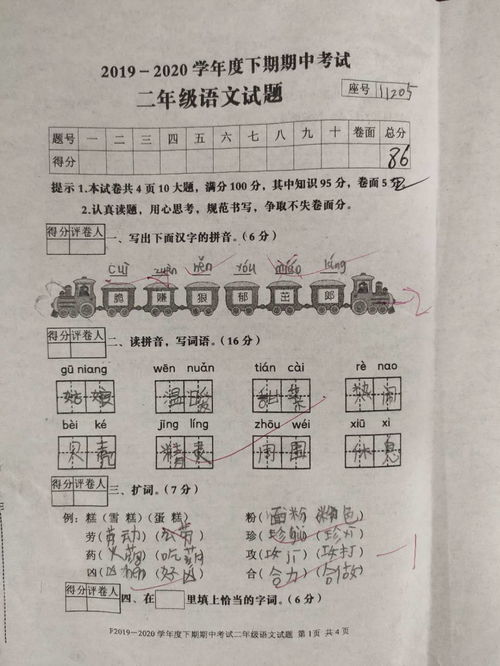 2019－2020学年度下期期中考试
二年级语文试题
座号 11205
题号 一 二 三 四 五 六 七 八 九 十 卷面 总分
得分 86
提示 1.本试卷共4页10大题，满分100分，其中知识95分，卷面5分
2.认真读题，用心思考，规范书写，争取不失卷面分。
得分 评卷人
一、写出下面汉字的拼音。(6分)
脆 赚 狠 郁 茁 郎
-2
得分 评卷人
二、读拼音，写词语。(16分)
gū niang wēn nuǎn tián cài rè nao
姑娘 温暖 甜菜 热闹
bèi ké jīng líng zhōu wéi xiū xi
贝壳 精灵 周围 休息
得分 评卷人
三、扩词。(7分)
例：糕（雪糕）（蛋糕） 粉（面粉）（粉色）
劳（劳动）（ ） 珍（ ）（ ）
药（火药）（吃药） 攻（ ）（攻打）
凶（ ）（ ） 合（合力）（合做）
-1
得分 评卷人
四、在 里填上恰当的字词。(6分)
F2019－2020学年度下期期中考试二年级语文试题 第1页 共4页